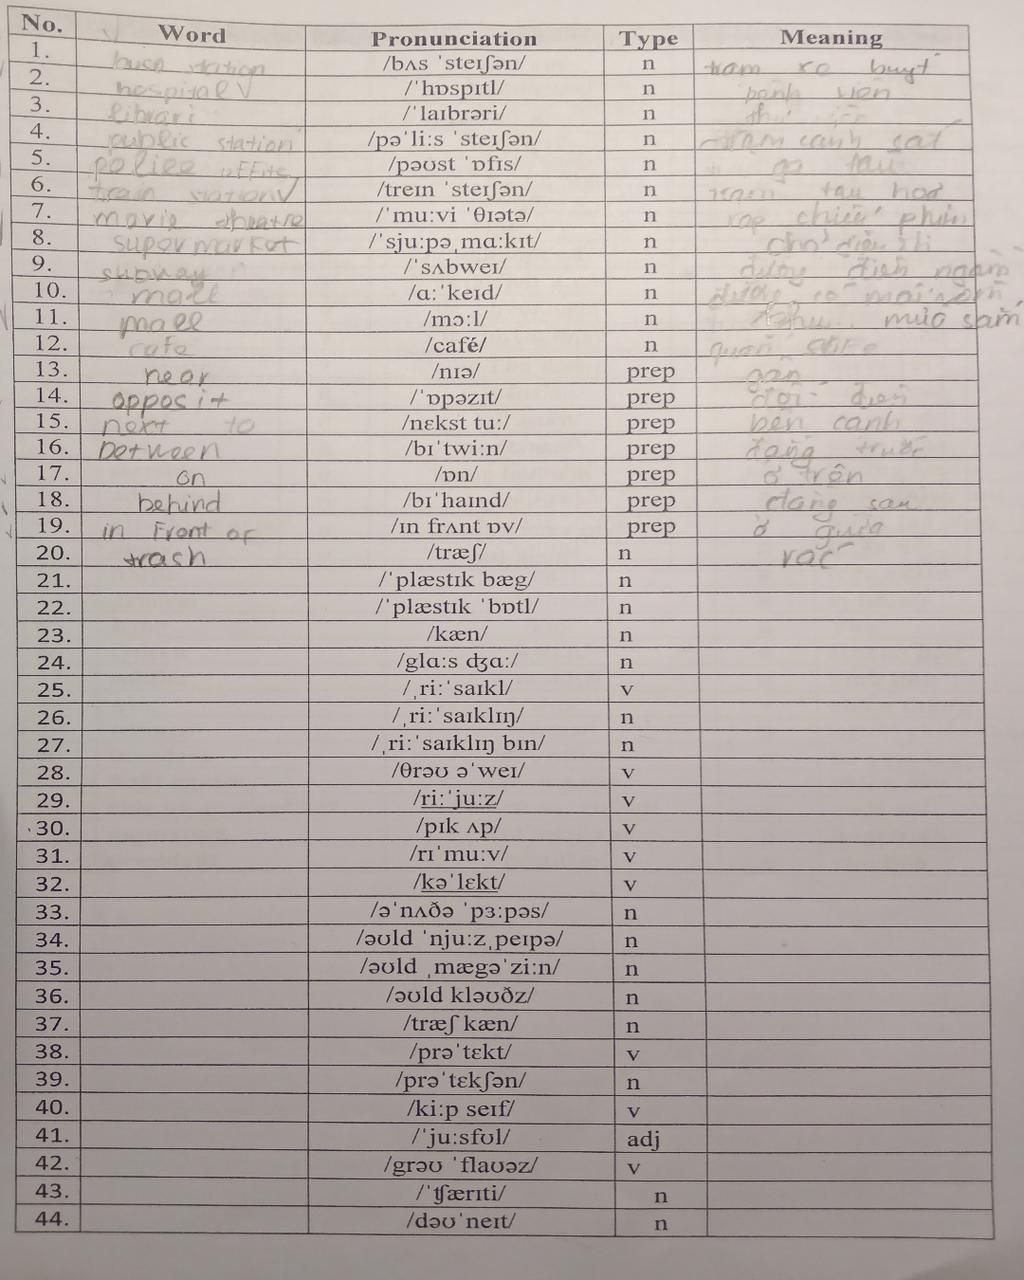 No. Word Pronunciation Type Meaning
1. busn station /bʌs ˈsteɪʃən/ n tram xe buyt
2. hospital /ˈhɒspɪtl/ n bệnh viện
3. librari /ˈlaɪbrəri/ n thư viện
4. public station /pəˈliːs ˈsteɪʃən/ n tram canh sat
5. police offits /pəʊst ˈɒfɪs/ n ga tau
6. train station /treɪn ˈsteɪʃən/ n tram tau hoa
7. movie theatre /ˈmuːvi ˈθɪətə/ n rap chiếu phim
8. supermarket /ˈsjuːpəˌmɑːkɪt/ n chơ
9. subway /ˈsʌbweɪ/ n đường ngầm
10. mall /ɑːˈkeɪd/ n đường có mái
11. mall /mɔːl/ n khu mua sắm
12. cafe /café/ n quan
13. near /nɪə/ prep gần
14. opposit /ˈɒpəzɪt/ prep đối diện
15. next to /nɛkst tuː/ prep bên canh
16. between /bɪˈtwiːn/ prep đằng trước
17. on /ɒn/ prep ở trên
18. behind /bɪˈhaɪnd/ prep đang sau
19. in Front of /ɪn frʌnt ɒv/ prep ở giữa
20. trash /træʃ/ n rác
21. /ˈplæstɪk bæg/ n
22. /ˈplæstɪk ˈbɒtl/ n
23. /kæn/ n
24. /glɑːs ʤɑː/ n
25. /ˌriːˈsaɪkl/ v
26. /ˌriːˈsaɪklɪŋ/ n
27. /ˌriːˈsaɪklɪŋ bɪn/ n
28. /θrəʊ əˈweɪ/ v
29. /riːˈjuːz/ v
30. /pɪk ʌp/ v
31. /rɪˈmuːv/ v
32. /kəˈlɛkt/ v
33. /əˈnʌðə ˈpɜːpəs/ n
34. /əʊld ˈnjuːzˌpeɪpə/ n
35. /əʊld ˌmægəˈziːn/ n
36. /əʊld kləʊðz/ n
37. /træʃ kæn/ n
38. /prəˈtɛkt/ v
39. /prəˈtɛkʃən/ n
40. /kiːp seɪf/ v
41. /ˈjuːsfʊl/ adj
42. /grəʊ ˈflaʊəz/ v
43. /ˈʧærɪti/ n
44. /dəʊˈneɪt/ n